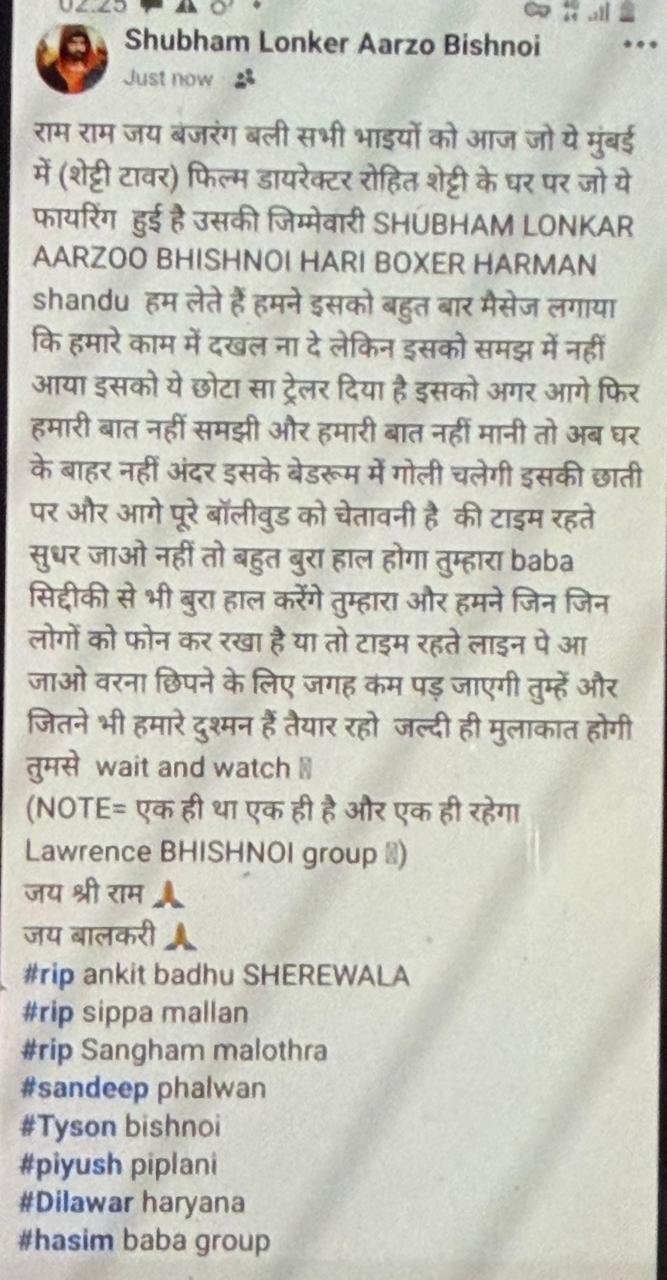 02:25
Shubham Lonker Aarzo Bishnoi
Just now
राम राम जय बजरंग बली सभी भाइयों को आज जो ये मुंबई
में (शेट्टी टावर) फिल्म डायरेक्टर रोहित शेट्टी के घर पर जो ये
फायरिंग हुई है उसकी जिम्मेवारी SHUBHAM LONKAR
AARZOO BHISHNOI HARI BOXER HARMAN
shandu हम लेते हैं हमने इसको बहुत बार मैसेज लगाया
कि हमारे काम में दखल ना दे लेकिन इसको समझ में नहीं
आया इसको ये छोटा सा ट्रेलर दिया है इसको अगर आगे फिर
हमारी बात नहीं समझी और हमारी बात नहीं मानी तो अब घर
के बाहर नहीं अंदर इसके बेडरूम में गोली चलेगी इसकी छाती
पर और आगे पूरे बॉलीवुड को चेतावनी है की टाइम रहते
सुधर जाओ नहीं तो बहुत बुरा हाल होगा तुम्हारा baba
सिद्दीकी से भी बुरा हाल करेंगे तुम्हारा और हमने जिन जिन
लोगों को फोन कर रखा है या तो टाइम रहते लाइन पे आ
जाओ वरना छिपने के लिए जगह कम पड़ जाएगी तुम्हें और
जितने भी हमारे दुश्मन हैं तैयार रहो जल्दी ही मुलाकात होगी
तुमसे wait and watch
(NOTE= एक ही था एक ही है और एक ही रहेगा
Lawrence BHISHNOI group )
जय श्री राम 🙏
जय बालकरी 🙏
#rip ankit badhu SHEREWALA
#rip sippa mallan
#rip Sangham malothra
#sandeep phalwan
#Tyson bishnoi
#piyush piplani
#Dilawar haryana
#hasim baba group